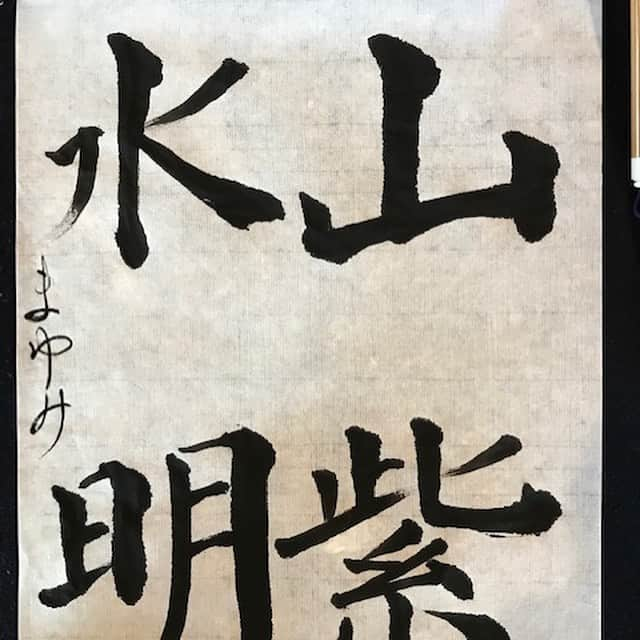 山紫
水明
まゆみ